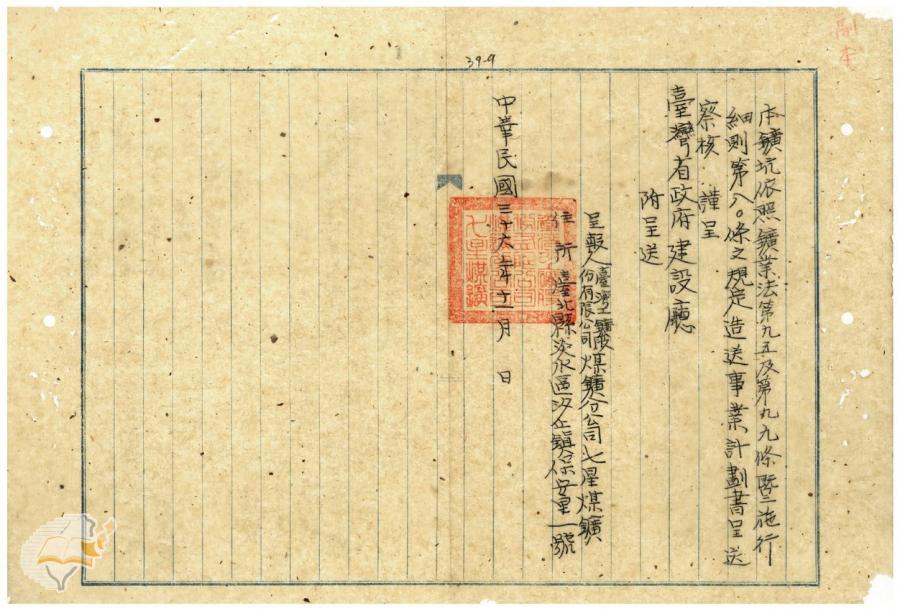 副本
本鑛坑依照鑛業法第九五及第九九條暨施行
細則第八〇條之規定造送事業計劃書呈送
察核 謹呈
臺灣省政府建設廳
附呈送
呈報人臺灣工鑛股份有限公司煤鑛分公司七星煤鑛
住所臺北縣淡水區汐止鎮保安里一號
七星煤鑛
中華民國三十六年十二月 日
39-9